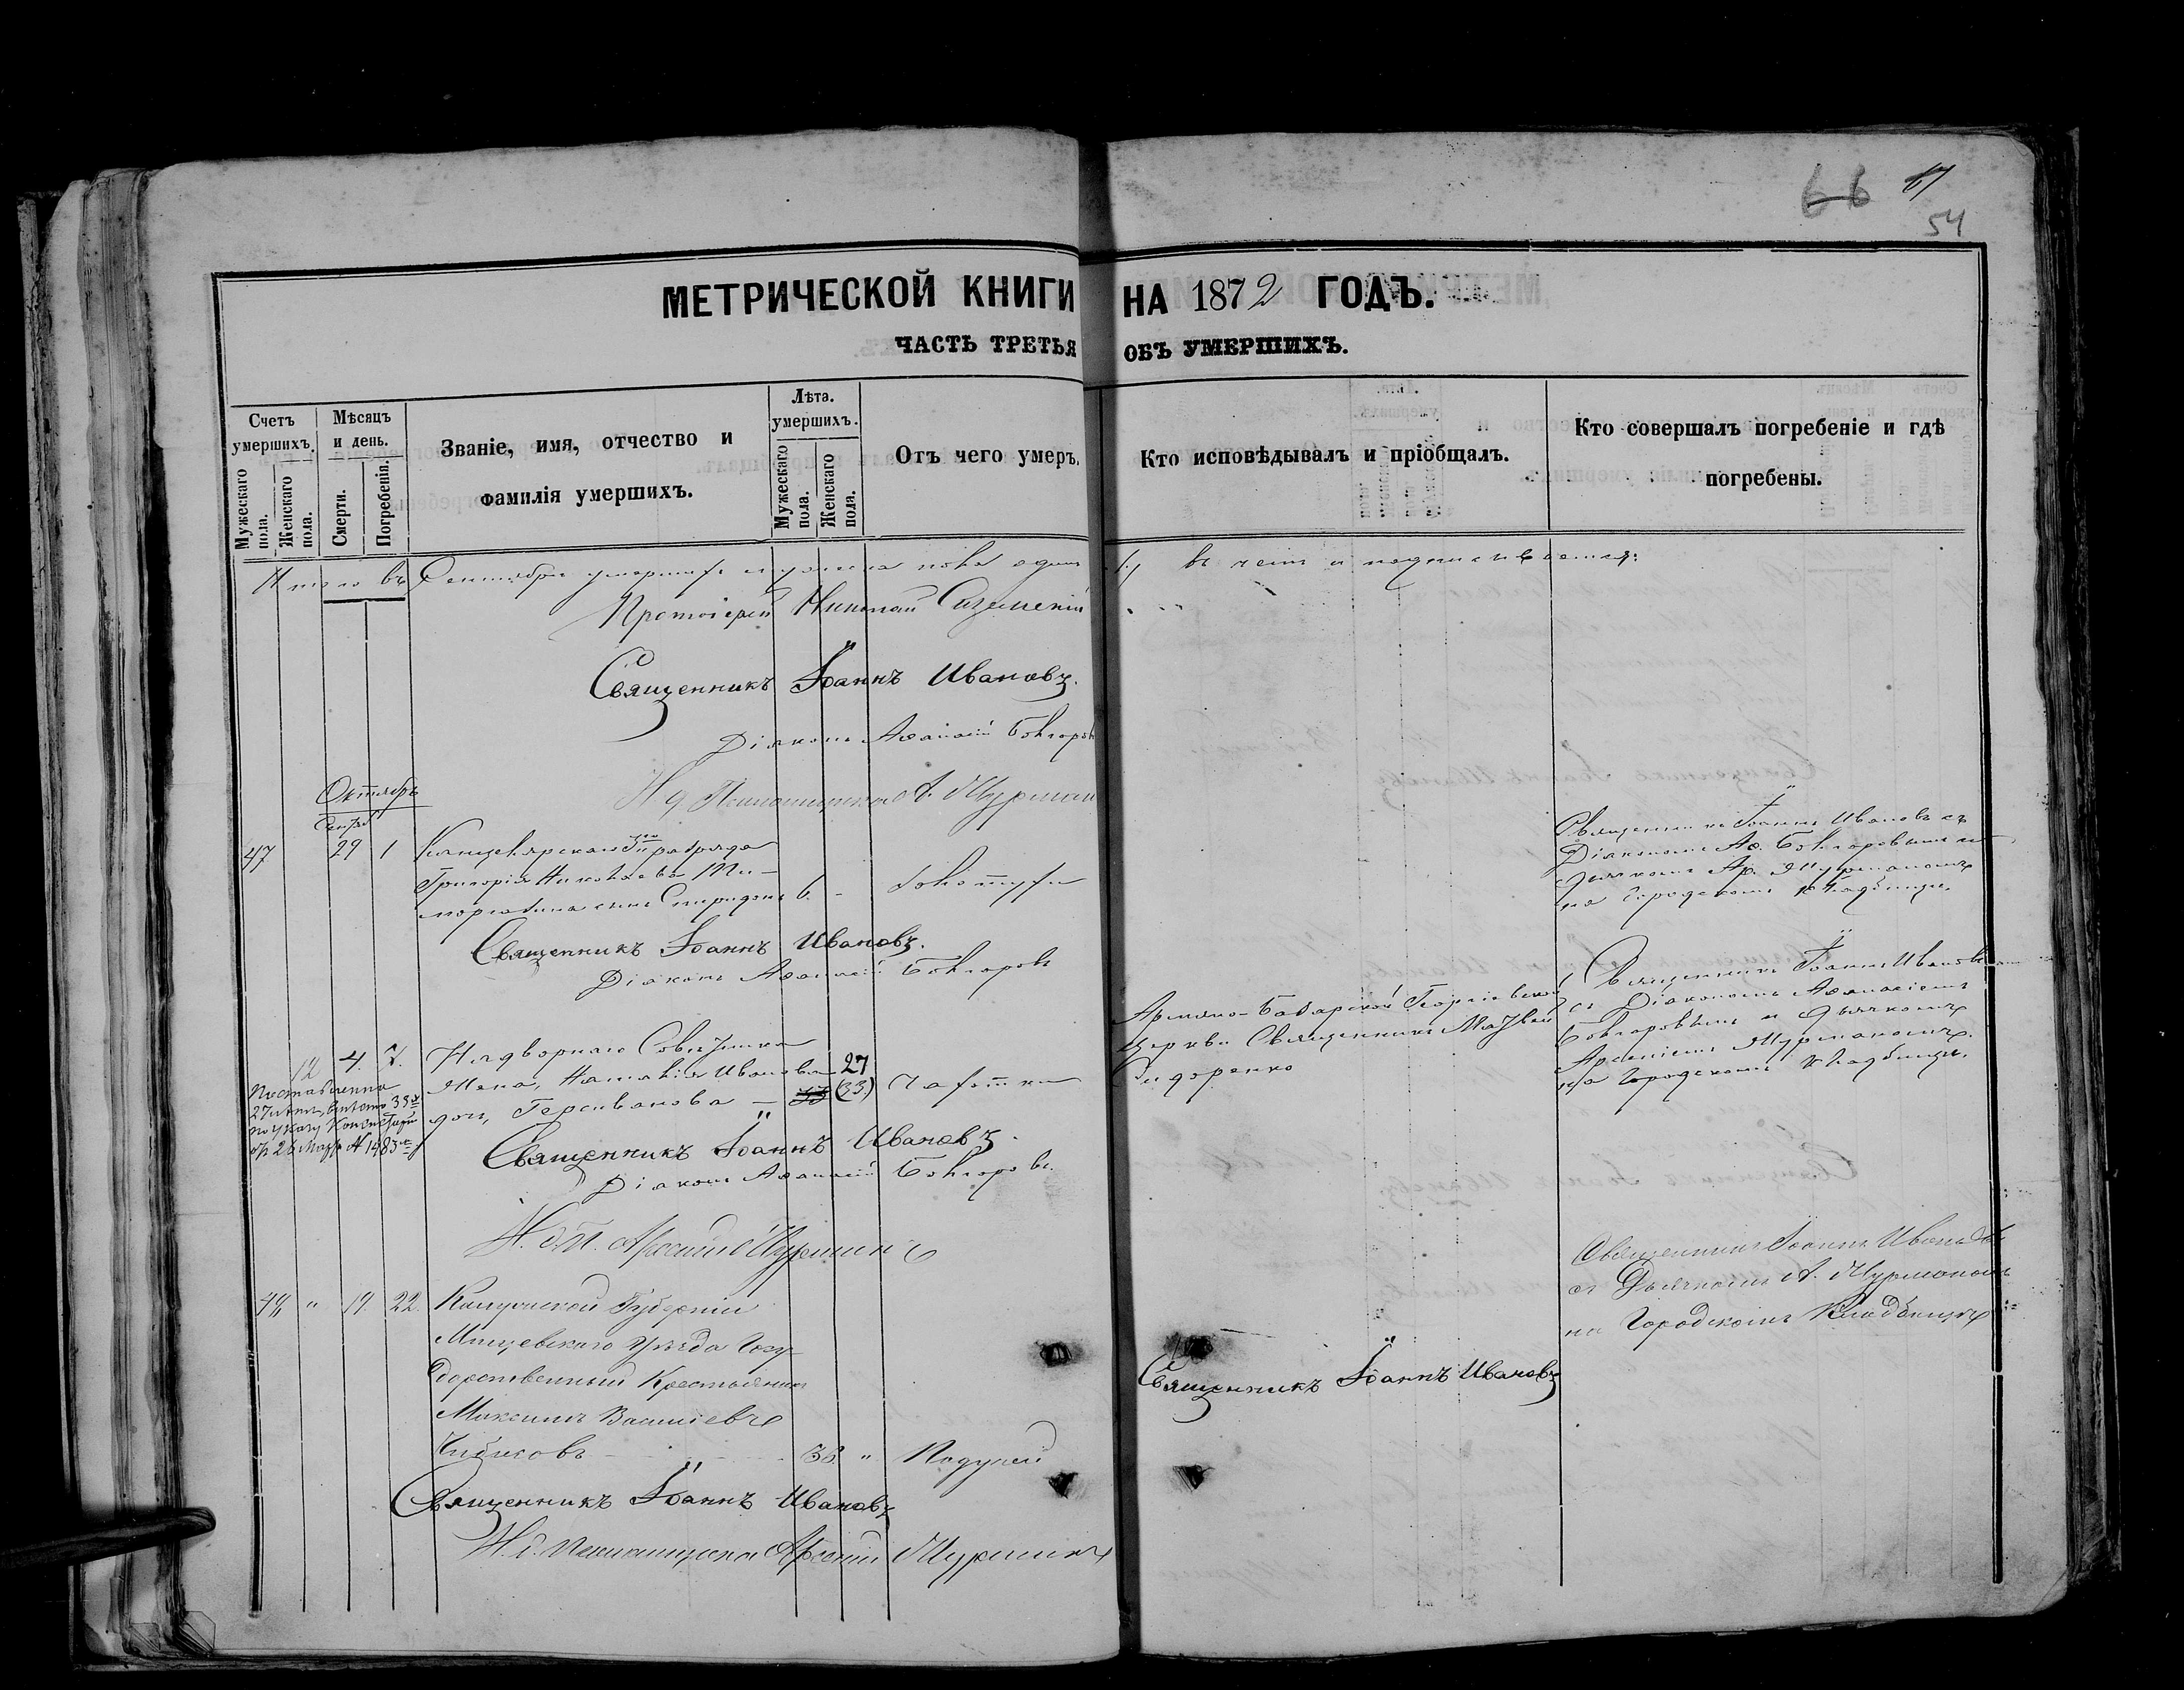 66 67
54
МЕТРИЧЕСКОЙ КНИГИ НА 1872 ГОДЪ.
ЧАСТЬ ТРЕТЬЯ ОБЪ УМЕРШИХЪ.
Счетъ умершихъ.
Мужескаго пола.
Женскаго пола.
Мѣсяцъ и день.
Смерти.
Погребенія.
Званіе, имя, отчество и
фамилія умершихъ.
Лѣта. умершихъ.
Мужескаго пола.
Женскаго пола.
Отъ чего умеръ.
Кто исповѣдывалъ и пріобщалъ.
Кто совершалъ погребеніе и гдѣ
погребены.
Итого въ Сентябрѣ умершихъ пола одинъ 1.) въ чемъ и подписываемся:
Протоіерей
Священникъ Іоаннъ Ивановъ.
Діаконъ Аѳанасій Болгаровъ
И д Пономаря А. Мурман
Октябрь
Сентяб
47 29 1 Канцелярскаго 3го разряда
Григорія Николаева
сынъ Спиридонъ 6. -
Священникъ Іоаннъ Ивановъ съ
Діакономъ Аѳ. Болгаровымъ и
дьячкомъ Ар. Мурманомъ
на Городскомъ кладбищѣ.
Священникъ Іоаннъ Ивановъ.
Діаконъ Аѳанасій Болгаровъ
12 4. 7. Надворнаго Совѣтника
жена, Наталія Иванова 27
дочь, — 33 (33.) Чахотки
27 лѣтъ, вмѣсто 33х
по указу Консисторіи
отъ 26 Марта № 1483
Церкви Священникъ Матвей
Сидоренко
Священникъ Іоаннъ Ивановъ
съ Діакономъ Аѳанасіемъ
Болгаровымъ и дьячкомъ
Арсеніемъ Мурманомъ.
на Городскомъ кладбищѣ.
Священникъ Іоаннъ Ивановъ.
Діаконъ Аѳанасій Болгаровъ.
И. д. П. Арсеній Мурманъ
48 " 19. 22. Калужской Губерніи
Мещевскаго Уѣзда Госу
дарственный Крестьянинъ
Максимъ Васильевъ
38. "
Священникъ Іоаннъ Ивановъ
Священникъ Іоаннъ Ивановъ
съ Дьячкомъ А. Мурманомъ
на Городскомъ Кладбищѣ
Священникъ Іоаннъ Ивановъ
И. д. Арсеній Мурманъ